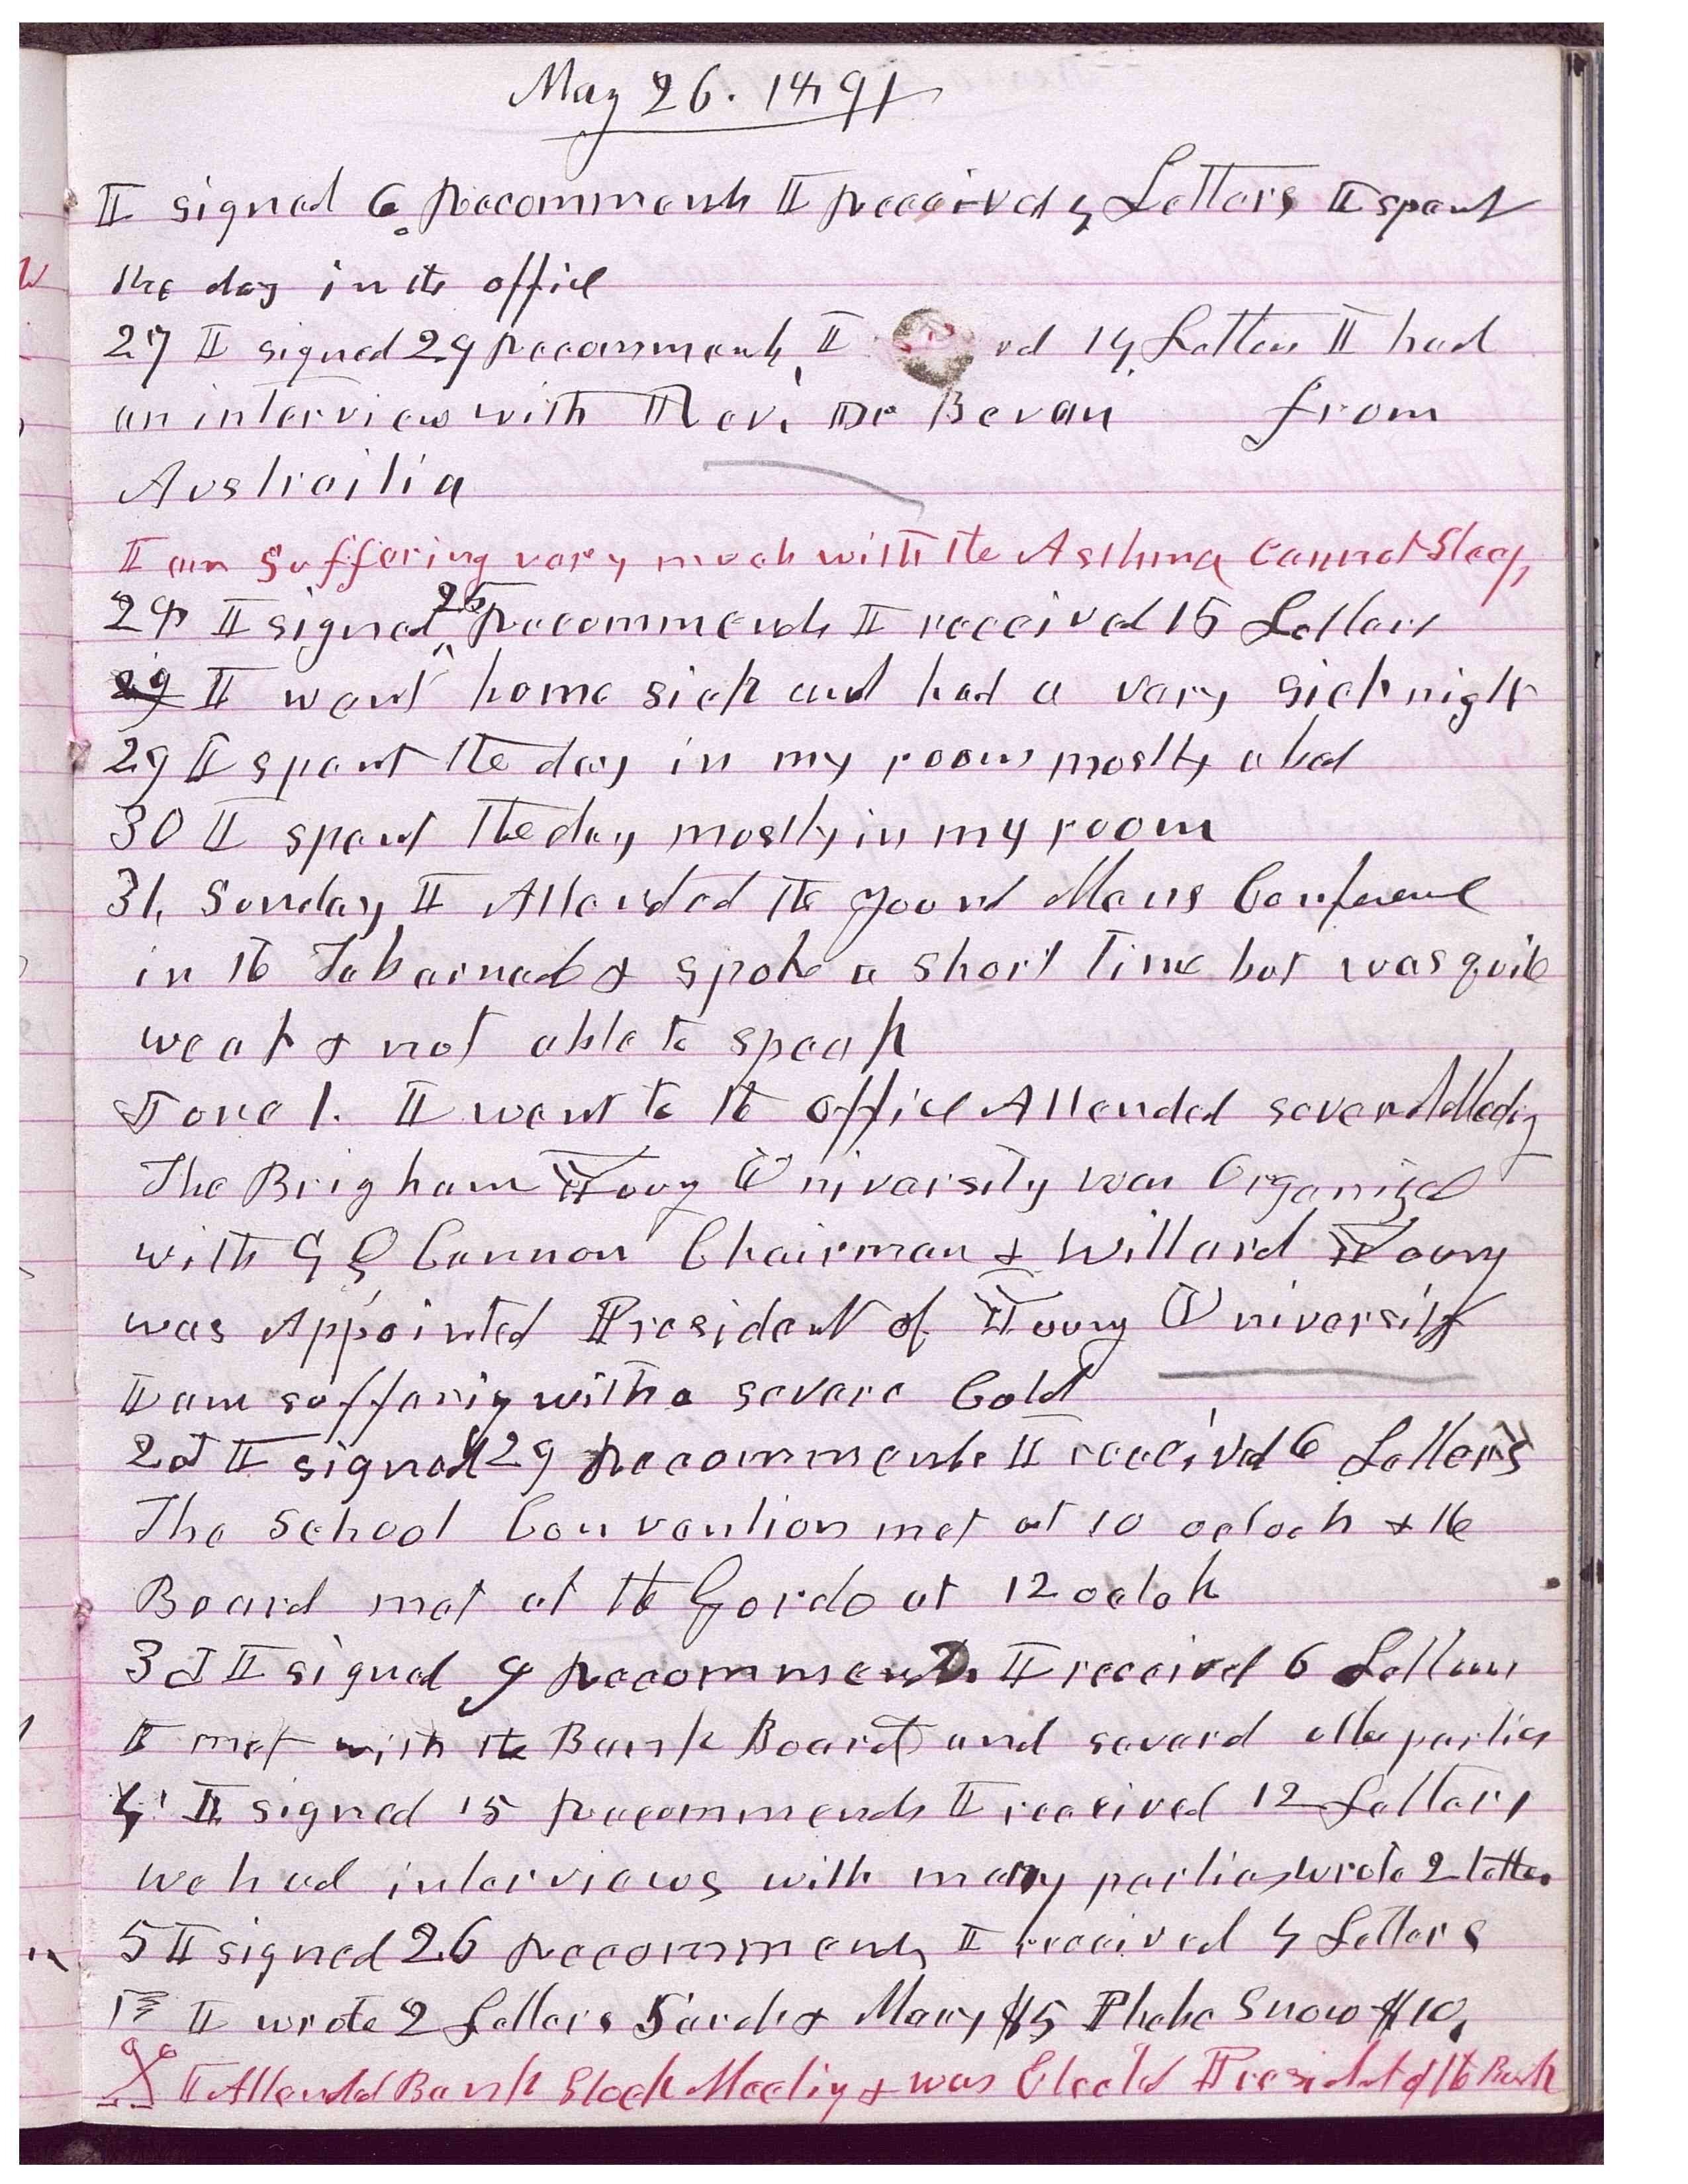 May 26. 1891
I signed 6 Recommends I Received 4 Letters I spent
the day in the office
27 I signed 29 Recommends I ed 14 Letters I had
an interview with Rev. Dr Bevan from
Austrailia
I am suffering very much with the Asthma Cannot Sleep
28 I signed 25 Recommends I received 15 Letters
29 I went home sick and had a very sick night
29 I spent the day in my room mostly abed
30 I spent the day mostly in my room
31, Sunday I Attended the Young Mens Conference
in the Tabernacle & spoke a short time but was quite
weak & not able to speak
June 1. I went to the office Attended several Meeting
The Brigham Young University was Organized
with G Q Cannon Chairman & Willard Young
was Appointed President of Young University
I am suffering with a severe Cold
2d I signed 29 Recommends I receivd 6 Letters
The School Convention met at 10 oclock & the
Board met at the Gardo at 12 oclok
3d I signed 9 Recommends I received 6 Letters
I met with the Bank Board and several othe parties
4 I signed 15 Recommends I received 12 Letters
we had interviews with many parties wrote 2 letters
5 I signed 26 Recommends I received 4 Letters
I wrote 2 Letters Sarah & Mary $5 Phebe Snow $10,
I Attended Bank Stock Meeting & was Elected President of the Bank